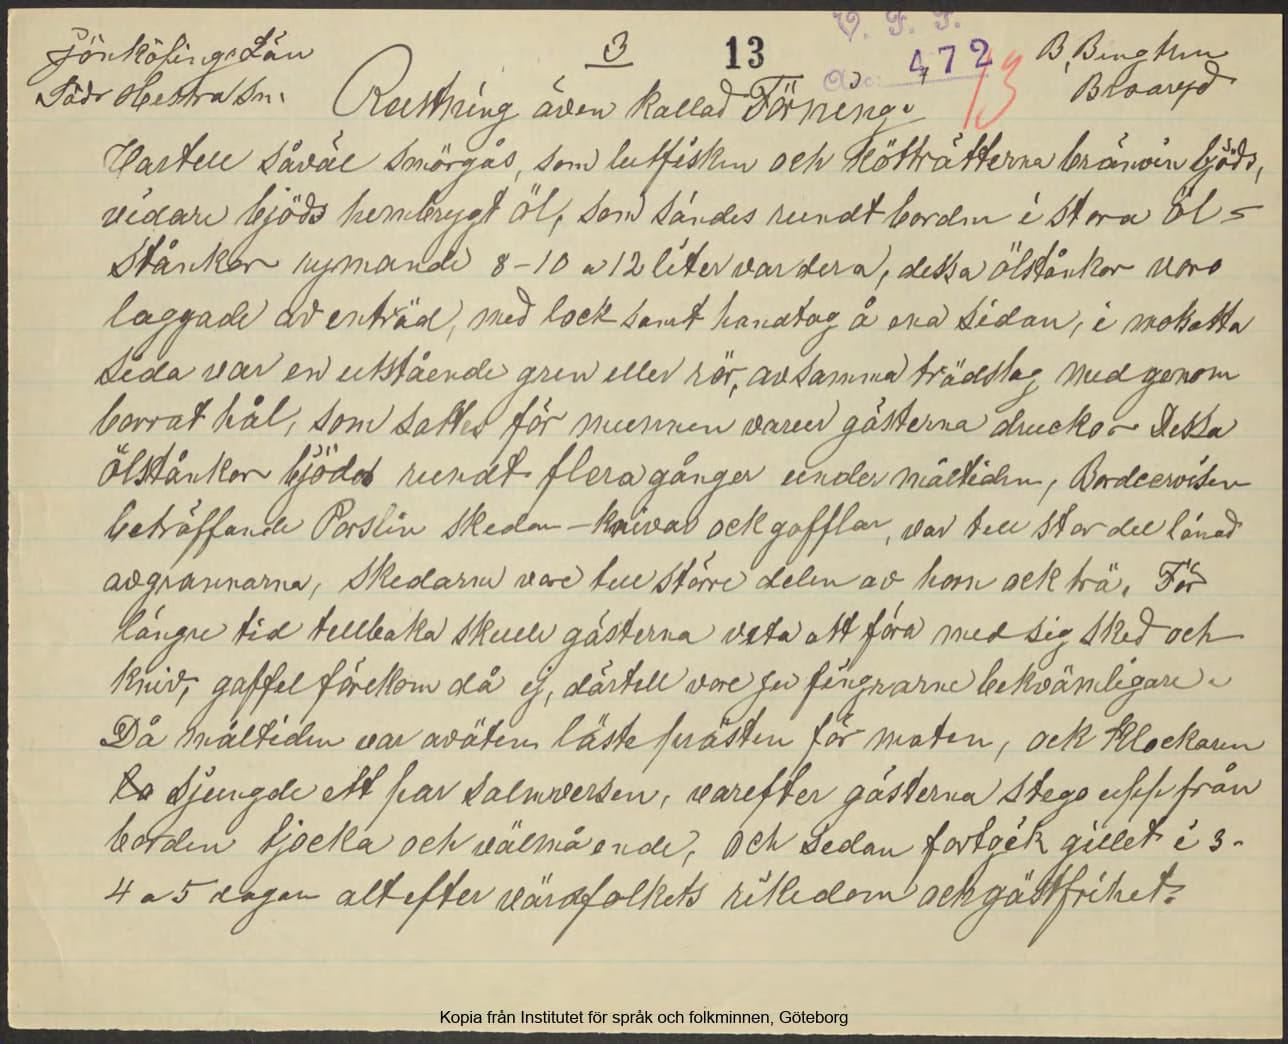 Jönköpings Län
Södr Hestra Sn.
3
13
V. F. F.
472
13
B. Bengtson
Broaryd
Rustning även kallad Förning.
Hartill såväl smörgås, som lutfisken och Kötträtterna bränvin bjöds,
vidare bjöds hembrygt öl, som sändes rundt borden i stora öl=
stånkor rymande 8-10 a 12 liter vardera, dessa ölstånkor voro
laggade av enträd, med lock samt handtag å ena sidan, i motsatta
sida var en utstående gren eller rör, av samma trädslag med genom
borrat hål, som sattes för munnen varur gästerna drucko. Dessa
ölstånkor bjöds rundt flera gånger under måltiden, Bordservisen
beträffande Porslin skedar - knivar ock gafflar, var till stor del lånad
av grannarna, skedarne vore till större delen av horn ock trä. För
längre tid tillbaka skulle gästerna veta att föra med sig sked och
kniv, gaffel förekom då ej, därtill vore ju fingrarne bekvämligare.
Då måltiden var aväten läste prästen för maten, ock Klockaren
sjungde ett par salmversen, varefter gästerna stego upp från
borden tjocka och välmående, och sedan fortgik gillet i 3-
4 a 5 dagar alt efter värdfolkets rikedom ock gästfrihet.
Kopia från Institutet för språk och folkminnen, Göteborg